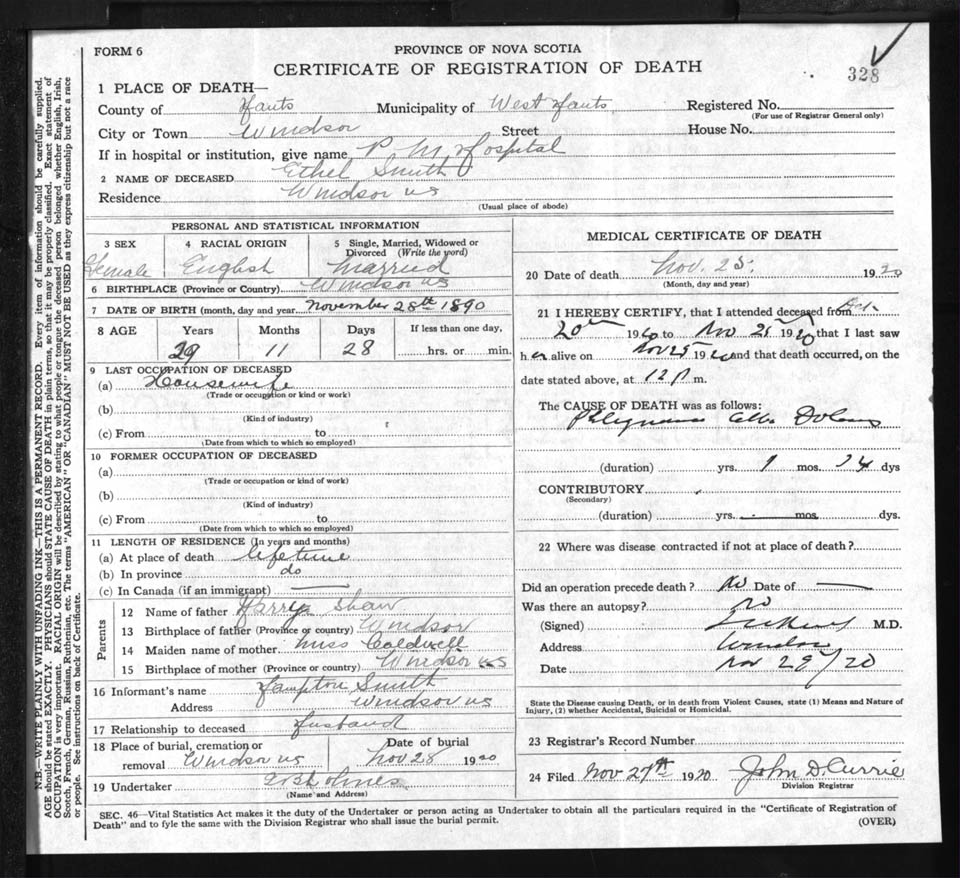 FORM 6
PROVINCE OF NOVA SCOTIA
CERTIFICATE OF REGISTRATION OF DEATH
328
1 PLACE OF DEATH—
County of Hants Municipality of West Hants Registered No.
(For use of Registrar General only)
City or Town Windsor Street House No.
If in hospital or institution, give name P. M. Hospital
2 NAME OF DECEASED Ethel Smith
Residence Windsor NS
(Usual place of abode)
PERSONAL AND STATISTICAL INFORMATION
3 SEX 4 RACIAL ORIGIN 5 Single, Married, Widowed or Divorced (Write the word)
Female English Married
6 BIRTHPLACE (Province or Country) Windsor NS
7 DATE OF BIRTH (month, day and year) November 28th 1890
8 AGE Years Months Days If less than one day,
29 11 28 hrs. or min.
9 LAST OCCUPATION OF DECEASED
(a) Housewife
(Trade or occupation or kind or work)
(b)
(Kind of industry)
(c) From to
(Date from which to which so employed)
10 FORMER OCCUPATION OF DECEASED
(a)
(Trade or occupation or kind of work)
(b)
(Kind of industry)
(c) From to
(Date from which to which so employed)
11 LENGTH OF RESIDENCE (In years and months)
(a) At place of death lifetime
(b) In province do
(c) In Canada (if an immigrant)
Parents
12 Name of father Harry Shaw
13 Birthplace of father (Province or country) Windsor
14 Maiden name of mother Miss Caldwell
15 Birthplace of mother (Province or country) Windsor NS
16 Informant's name Hampton Smith
Address Windsor NS
17 Relationship to deceased Husband
18 Place of burial, cremation or removal Windsor NS Date of burial Nov 28 1920
19 Undertaker
(Name and Address)
MEDICAL CERTIFICATE OF DEATH
20 Date of death Nov. 25. 1920
(Month, day and year)
21 I HEREBY CERTIFY, that I attended deceased from Oct.
20th 1920 to Nov 25 1920 that I last saw
her alive on Nov 25 1920 and that death occurred, on the
date stated above, at 12 P m.
The CAUSE OF DEATH was as follows:
Alba Dolens
(duration) yrs. 1 mos. dys
CONTRIBUTORY
(Secondary)
(duration) yrs. mos. dys.
22 Where was disease contracted if not at place of death?
Did an operation precede death? No Date of
Was there an autopsy? no
(Signed) M.D.
Address Windsor
Date Nov 29/20
State the Disease causing Death, or in death from Violent Causes, state (1) Means and Nature of
Injury, (2) whether Accidental, Suicidal or Homicidal.
23 Registrar's Record Number
24 Filed Nov 27th 1920 John D. Currie
Division Registrar
SEC. 46—Vital Statistics Act makes it the duty of the Undertaker or person acting as Undertaker to obtain all the particulars required in the "Certificate of Registration of
Death" and to fyle the same with the Division Registrar who shall issue the burial permit.
(OVER)
N.B.—WRITE PLAINLY WITH UNFADING INK—THIS IS A PERMANENT RECORD. Every item of information should be carefully supplied.
AGE should be stated EXACTLY. PHYSICIANS should STATE CAUSE OF DEATH in plain terms, so that it may be properly classified. Exact statement of
OCCUPATION is very important. RACIAL ORIGIN will be described by stating to what people or tongue the deceased person belonged whether English, Irish,
Scotch, French, German, Russian, Ruthenian, etc. The terms "AMERICAN" OR "CANADIAN" MUST NOT BE USED as they express citizenship but not a race
or people. See instructions on back of Certificate.